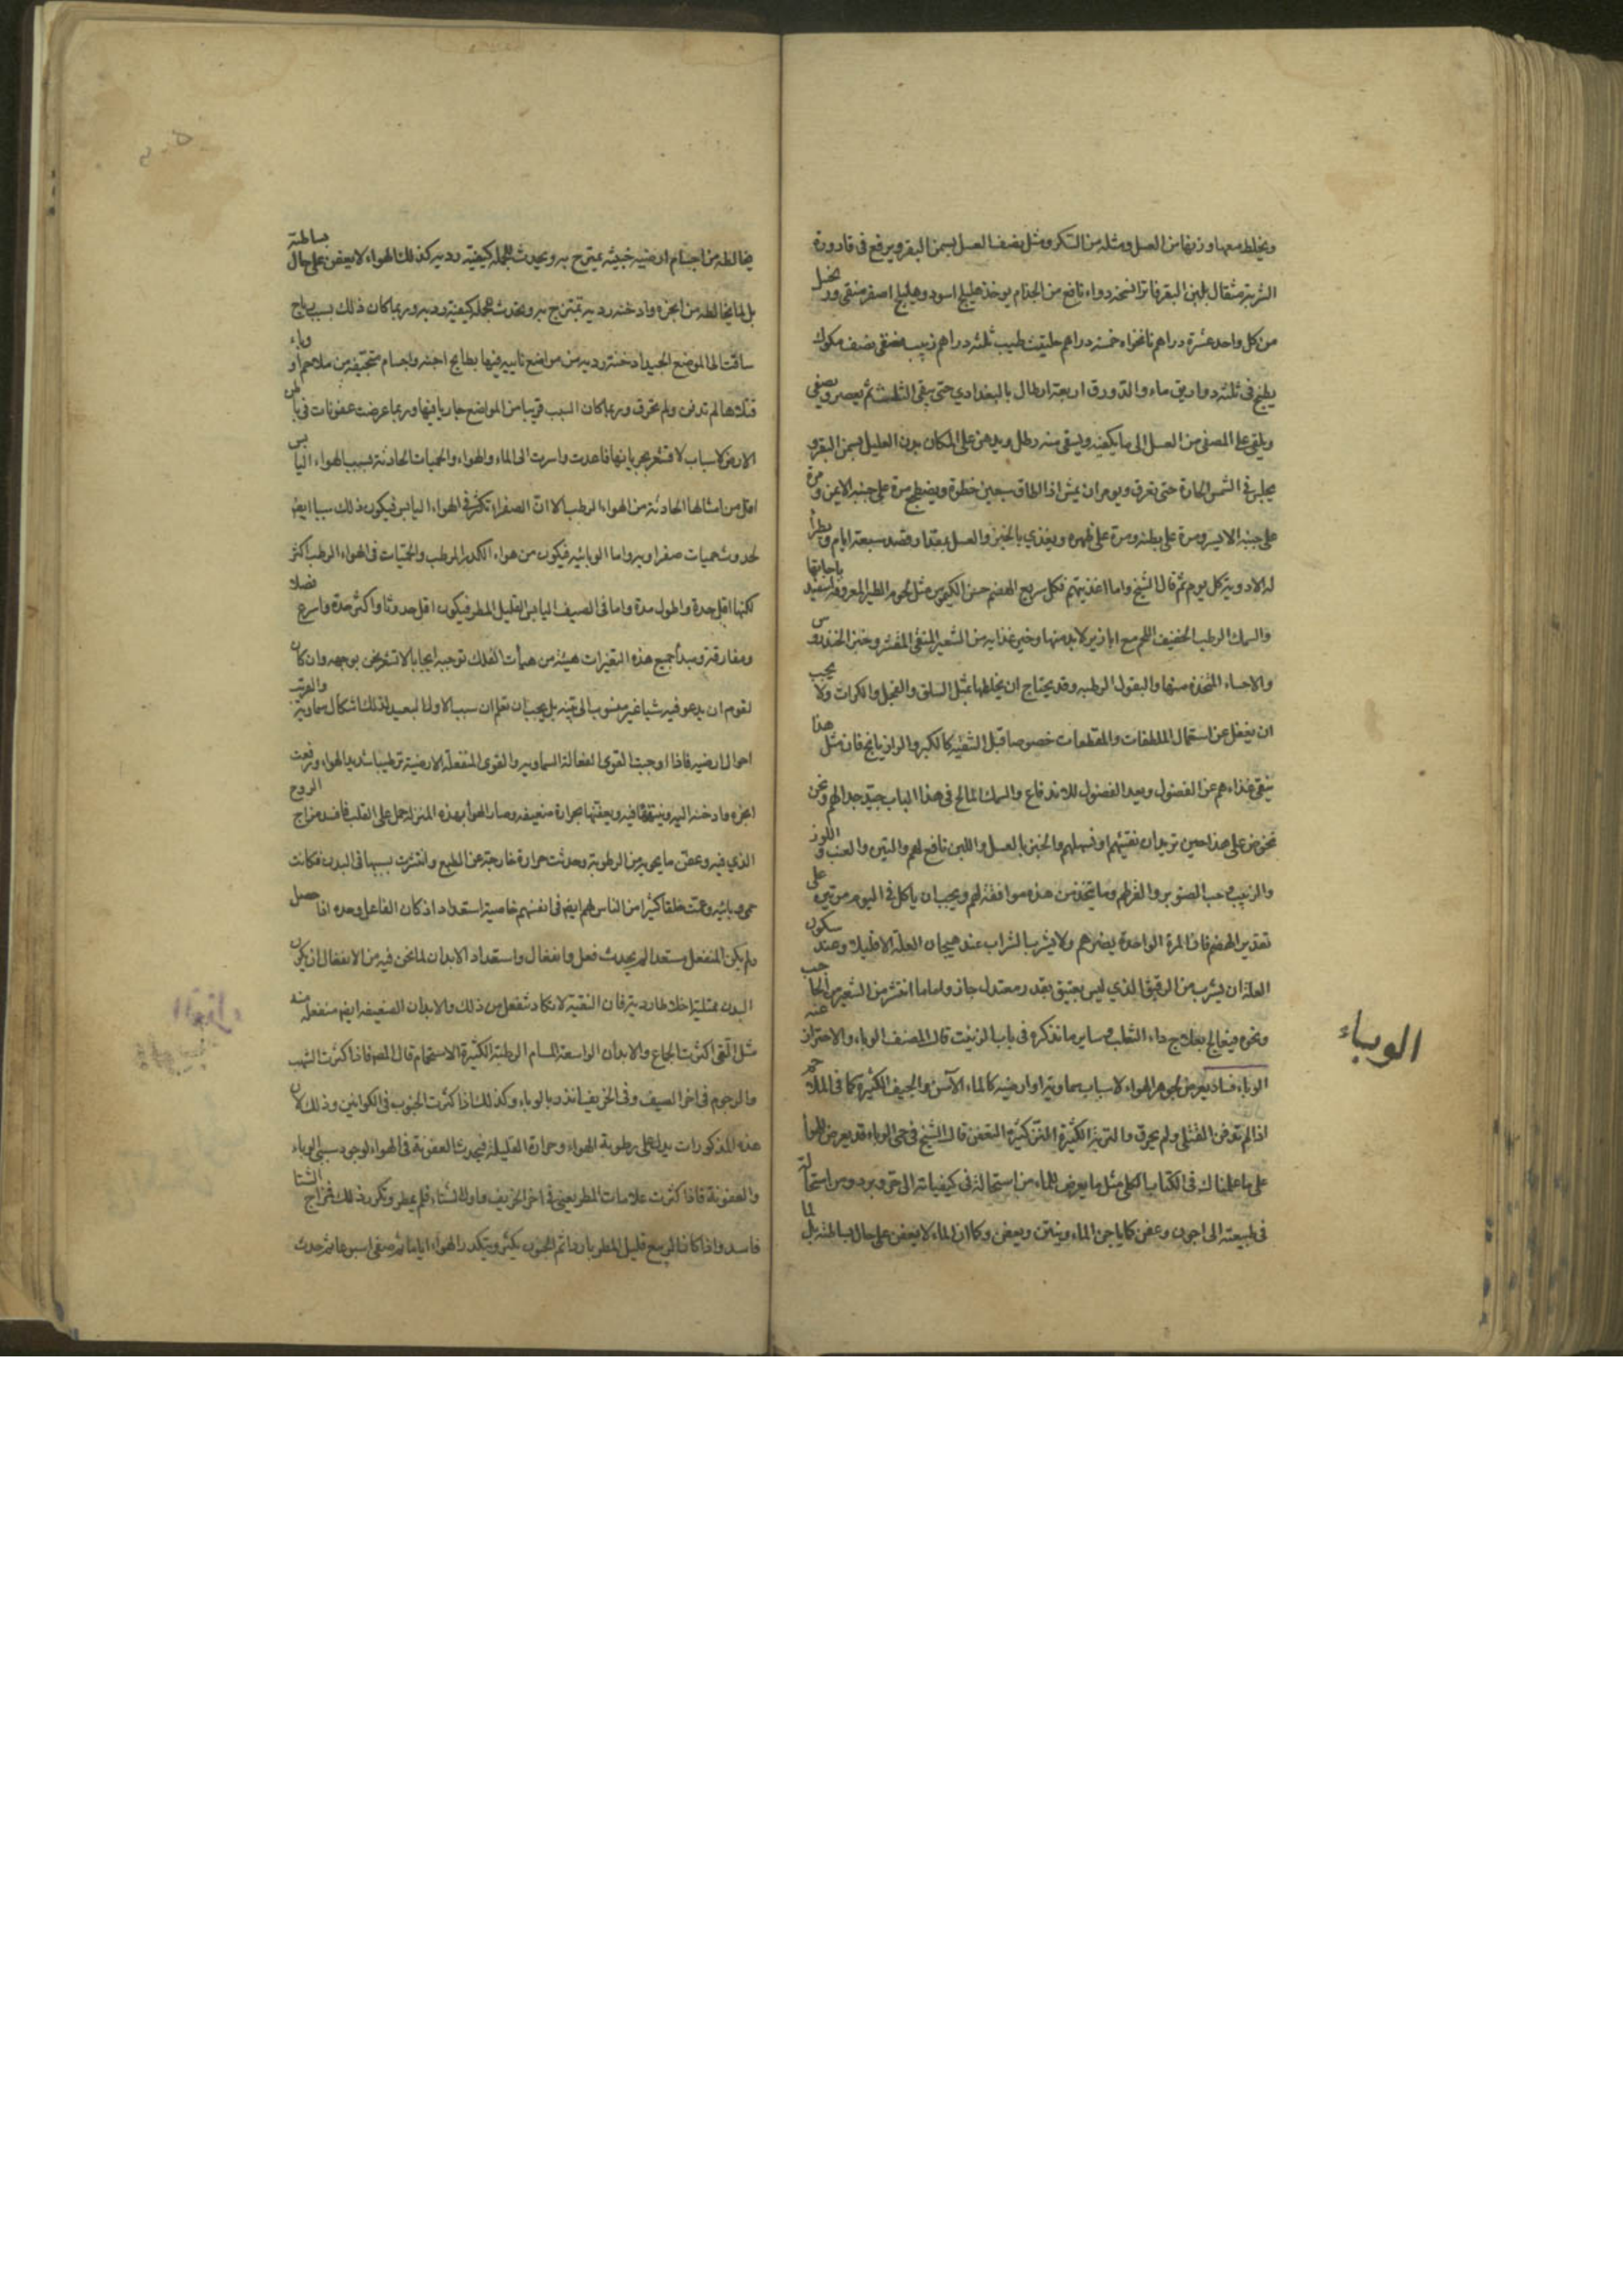 ويخلط معها وزنها من العسل ومثله من السكر ومثل نصف العسل سمن البقر ويرفع في قارورة
الشربة مثقال بلبن البقر فاترا نسخة دواء نافع من الجذام يوخذ هليلج اسود وهليلج اصفر منقى
من كل واحد عشرة دراهم نانخواه خمسة دراهم حلتيت طيب ثلثة دراهم زبيب منقى نصف مكوك
يطبخ في ثلثة دواريق ماء والدورق اربعة ارطال بالبغدادي حتى يبقى الثلث ثم يعصر ويصفى
ويلقى على المصفى من العسل الى ما يكفيه ويسقى منه رطل ويدهن على المكان بدن العليل بسمن البقر و
يجلس في الشمس الحارة حتى يعرق ويومر ان يمشي اذا اطاق سبعين خطوة ويضطجع مرة على جنبه الايمن ومرة
على جنبه الايسر ومرة على بطنه ومرة على ظهره ويغذي بالخبز والعسل بمقدار قصد سبعة ايام
له الادوية كل يوم ثم قال الشيخ واما اغذيتهم فكل سريع الهضم حسن الكيموس مثل لحوم الطير المعروفة
والسمك الرطب الخفيف اللحم مع ابازير لابد منها وخير غذايه من الشعير المنقى المقشر وخبز الخندروس
والاحساء المتخذة منها والبقول الرطبة وقد يحتاج ان يخلطها بمثل السلق والفجل والكراث ولا يجب
ان يغفل عن استعمال الملطفات والمقطعات خصوصا قبل التنقية كالكبر والرازيانج فان مثل هذا
ينقي غذاءهم عن الفضول ويعد الفضول للاندفاع والسمك المالح في هذا الباب جيد جدا لهم ونحن
نحرض على هذا حين نريد ان نقيئهم او نسهلهم والخبز بالعسل واللبن نافع لهم والتين والعنب واللوز
والزبيب وحب الصنوبر والقرطم وما يتخذ من هذه موافقة لهم ويجب ان ياكل في اليوم مرتين على
تقدير الهضم فان المرة الواحدة يضرهم ولا يشرب الشراب عند هيجان العلة الا قليلا وعند سكون
العلة ان يشرب من الرقيق الذي ليس بعتيق بقدر معتدل جاز واما ما انتثر من الشعر من الحاجب
ونحوه فيعالج بعلاج داء الثعلب وساير ما نذكره في باب الزينة قال المصنف الوباء والاحتراز عنه
الوباء
الوباء فساد يعرض لجوهر الهواء لاسباب سماوية او ارضية كالماء الآسن والجيف الكثيرة كما في الملاحم
اذا لم تدفن القتلى ولم يحرق والتربة الكثيرة النز كثيرة التعفن قال الشيخ في حمى الوباء قد يعرض للهوا
على ما علمناك في الكتاب الكلي مثل ما يعرض للماء من استحالة في كيفياته الى حر وبرد ومن استحالة
في طبيعته الى اجون وعفن كما ياجن الماء وينتن ويعفن وكما ان الماء لا يعفن على حال بساطته بل لما
يخالطه من اجسام ارضية خبيثة يمتزج به ويحدث للجملة كيفية ردية كذلك الهواء لا يعفن على حال بساطته
بل لما يخالطه من ابخرة وادخنة ردية تمتزج به ويحدث للجملة كيفية ردية وربما كان ذلك بسبب رياح
ساقت الى الموضع الجيد ادخنة ردية من مواضع نايية فيها بطايح اجنة واجسام متجيفة من ملاحم او وباء
قتلاها لم تدفن ولم تحرق وربما كان السبب قريبا من المواضع جاريا فيها وربما عرضت عفونات في باطن
الارض لاسباب لا نشعر بجرياتها فاعدت واسرت الى الماء والهواء والحميات الحادثة بسبب الهواء اليابس
اقل من امثالها الحادثة من الهواء الرطب الا ان الصفراء تكثر في الهواء اليابس فيكون ذلك سببا ايضا
لحدوث حميات صفراوية واما الوبائية فيكون من هواء الكدر الرطب والحميات في الهواء الرطب اكثر
لكنها اقل حدة واطول مدة واما في الصيف اليابس القليل المطر فيكون اقل حدوثا واكثر حدة واسرع فضلا
ومفارقة ومبدأ جميع هذه التغيرات هيئة من هيآت الفلك توجبه ايجابا لا نشعر نحن بوجهه وان كان
لقوم ان يدعو فيه شيا غير منسوب الى بينة بل يجب ان تعلم ان سبب الاول البعيد لذلك اشكال سماوية والقريب
احوال ارضية فاذا اوجبت القوى الفعالة السماوية والقوى المنفعلة الارضية ترطيبا شديدا للهواء ورفعت
ابخرة وادخنة اليه ويبثها فيه ويعفنها بحرارة ضعيفة وصار الهوا بهذه المنزلة حمل على القلب فافسد مزاج الروح
الذي فيه وعفن ما يحويه من الرطوبة وحدثت حرارة خارجة عن الطبع وانتشرت بسببها في البدن فكانت
حمى وبائية وعمت خلقا كثيرا من الناس لهم ايضا في انفسهم خاصية استعداد اذ كان الفاعل وحده اذا حصل
ولم يكن المنفعل مستعدا لم يحدث فعل وانفعال واستعداد الابدان لما نحن فيه من الانفعال ان يكون
البدن ممتليا اخلاطا ردية فان النقية لا تكاد تنفعل من ذلك والابدان الضعيفة ايضا منفعلة منه
مثل التي اكثرت الجماع والابدان الواسعة المسام الرطبة الكثيرة الاستحمام قال المص فاذا كثرت الشهب
والرجوم في اخر الصيف وفي الخريف انذر بالوباء وكذلك اذا كثرت الجنوب في الكوانين وذلك لان
هذه المذكورات يدل على رطوبة الهواء وحرارة القليلة فيحدث العفونة في الهواء لوجود سببي الوباء
والعفونة فاذا كثرت علامات المطر يعني في اخر الخريف واول الشتاء فلم يمطر وتكرر ذلك فمزاج الشتا
فاسد واذا كان الربيع قليل المطر باردا ثم الجنوب يكثر ويتكدر الهواء اياما ثم صفى اسبوعا ثم حدث